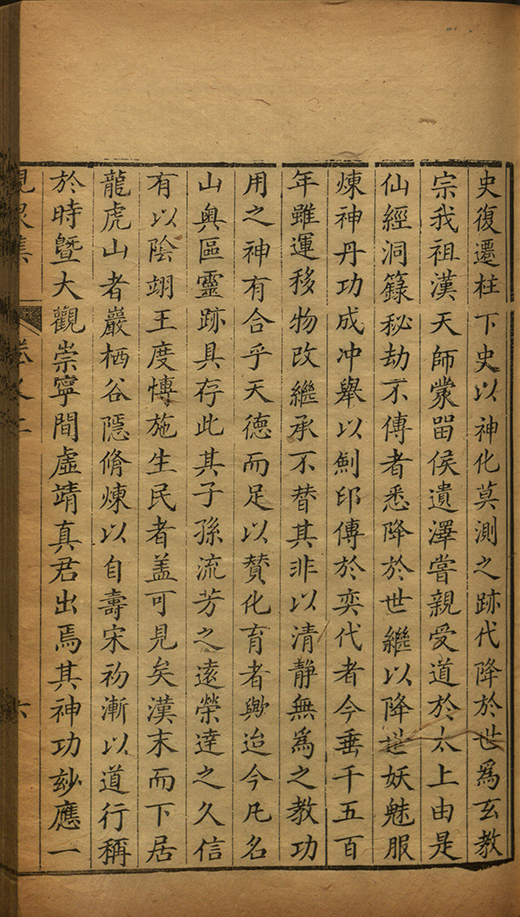 史復遷柱下史以神化莫測之跡代降於世爲玄教
宗我祖漢天師蒙畱侯遺澤嘗親受道於太上由是
仙經洞籙秘劫不傳者悉降於世繼以降世妖魅服
煉神丹功成冲舉以劍印傳於奕代者今垂千五百
年雖運移物改繼承不替其非以清静無爲之教功
用之神有合乎天德而足以贊化育者歟迨今凡名
山奥區靈跡具存此其子孫流芳之遠榮達之久信
有以陰翊王度愽施生民者盖可見矣漢末而下居
龍虎山者巖栖谷隱脩煉以自壽宋初漸以道行稱
於時暨大觀崇寧間虛靖真君出焉其神功玅應一
卷之二
六